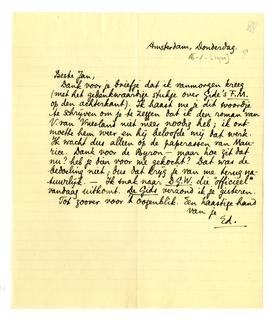 Amsterdam, Donderdag.
Beste Jan,
Dank voor je briefje dat ik vanmorgen kreeg
(met het gedenkwaardige stukje over Gide's F.M.
op den achterkant). Ik haast me je dit woordje
te schrijven om je te zeggen dat ik den roman van
V. van Vriesland niet meer noodig heb; ik ont-
moette hem weer en hij beloofde mij dat werk.
Ik wacht dus alleen op de paperassen van Mau-
rice. Dank voor de Byron — maar hoe zit dat
nu? heb je dien voor me gekocht? Dat was de
bedoeling niet; dus dat krijg je van me terug na-
tuurlijk. — Ik snak naar D.G.W. die "officieel"
vandaag uitkomt. De Gids verzond ik je gisteren.
Tot zoover voor 't oogenblik. Een haastige hand
van je
Ed.